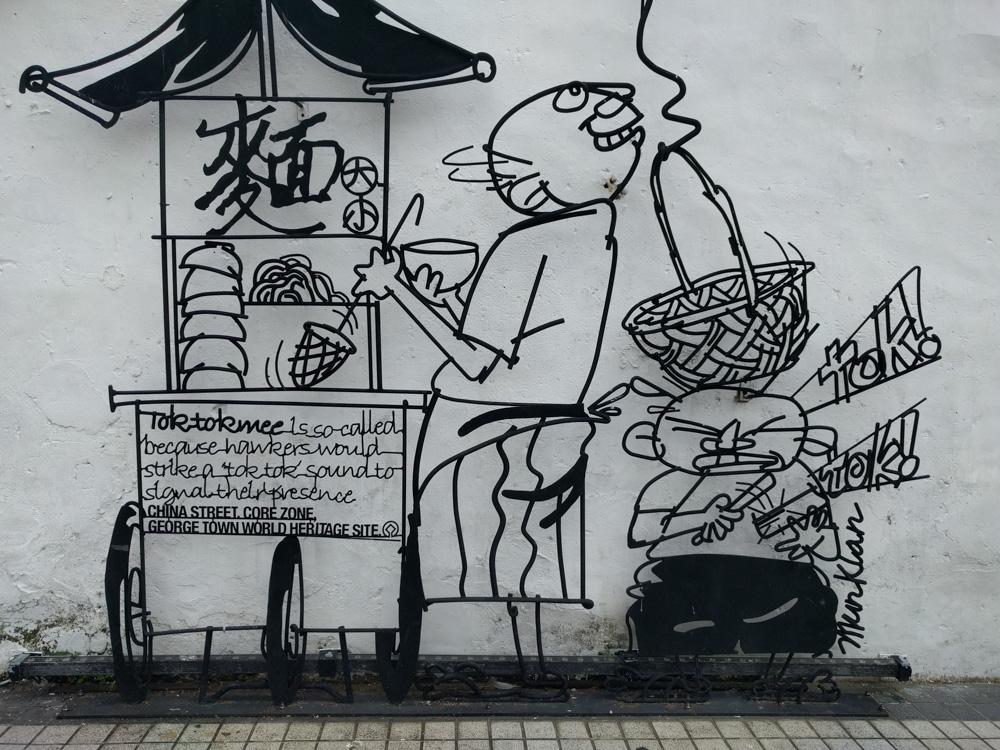 麵
大
小
Tok-tok mee is so-called
because hawkers would
strike a 'tok tok' sound to
signal their presence
CHINA STREET, CORE ZONE,
GEORGE TOWN WORLD HERITAGE SITE.
TOK!
TOK!
Mun Kian